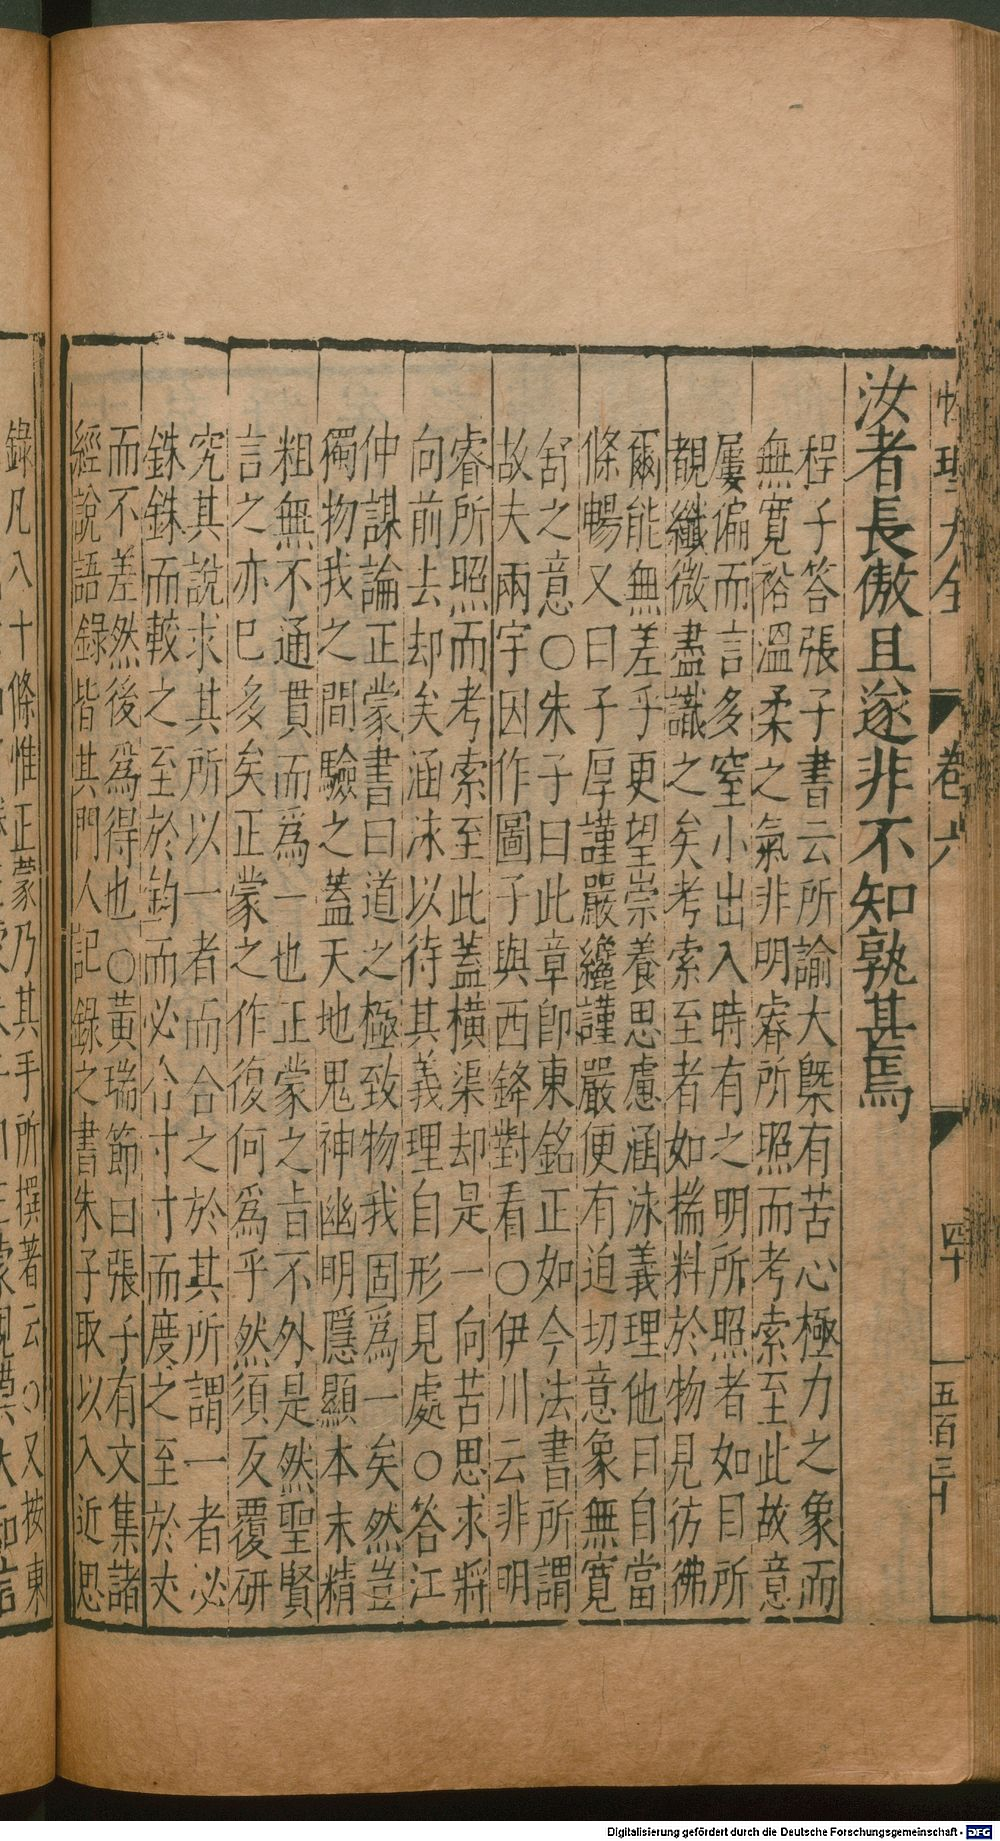 性理大全
卷六
四十
五百三十
汝者長傲且遂非不知孰甚焉
程子答張子書云所諭大槩有苦心極力之象而
無寬裕溫柔之氣非明睿所照而考索至此故意
屢偏而言多窒小出入時有之明所照者如目所
覩纖微盡識之矣考索至者如揣料於物見彷彿
爾能無差乎更望崇養思慮涵泳義理他日自當
條暢又曰子厚謹嚴纔謹嚴便有迫切意象無寬
舒之意○朱子曰此章卽東銘正如今法書所謂
故夫兩字因作圖子與西銘對看○伊川云非明
睿所照而考索至此蓋橫渠却是一向苦思求將
向前去却矣涵泳以待其義理自形見處○答江
仲謀論正蒙書曰道之極致物我固爲一矣然豈
獨物我之間驗之蓋天地鬼神幽明隱顯本末精
粗無不通貫而爲一也正蒙之旨不外是然聖賢
言之亦已多矣正蒙之作復何爲乎然須反覆研
究其說求其所以一者而合之於其所謂一者必
銖銖而較之至於鈞而必合寸寸而度之至於丈
而不差然後爲得也○黃瑞節曰張子有文集諸
經說語錄皆其門人記錄之書朱子取以入近思
錄凡八十條惟正蒙乃其手所撰著云○又按東
Digitalisierung gefördert durch die Deutsche Forschungsgemeinschaft - DFG